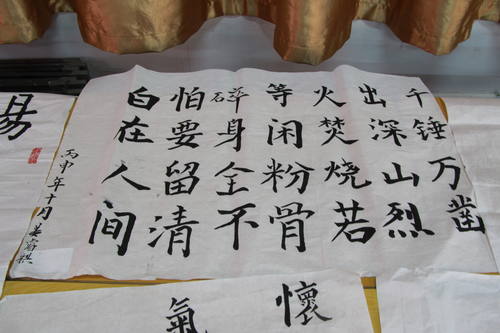 千锤万凿
出深山烈
火焚烧若
等闲粉骨
碎身全不
怕要留清
白在人间
丙申年十月
懷
氣